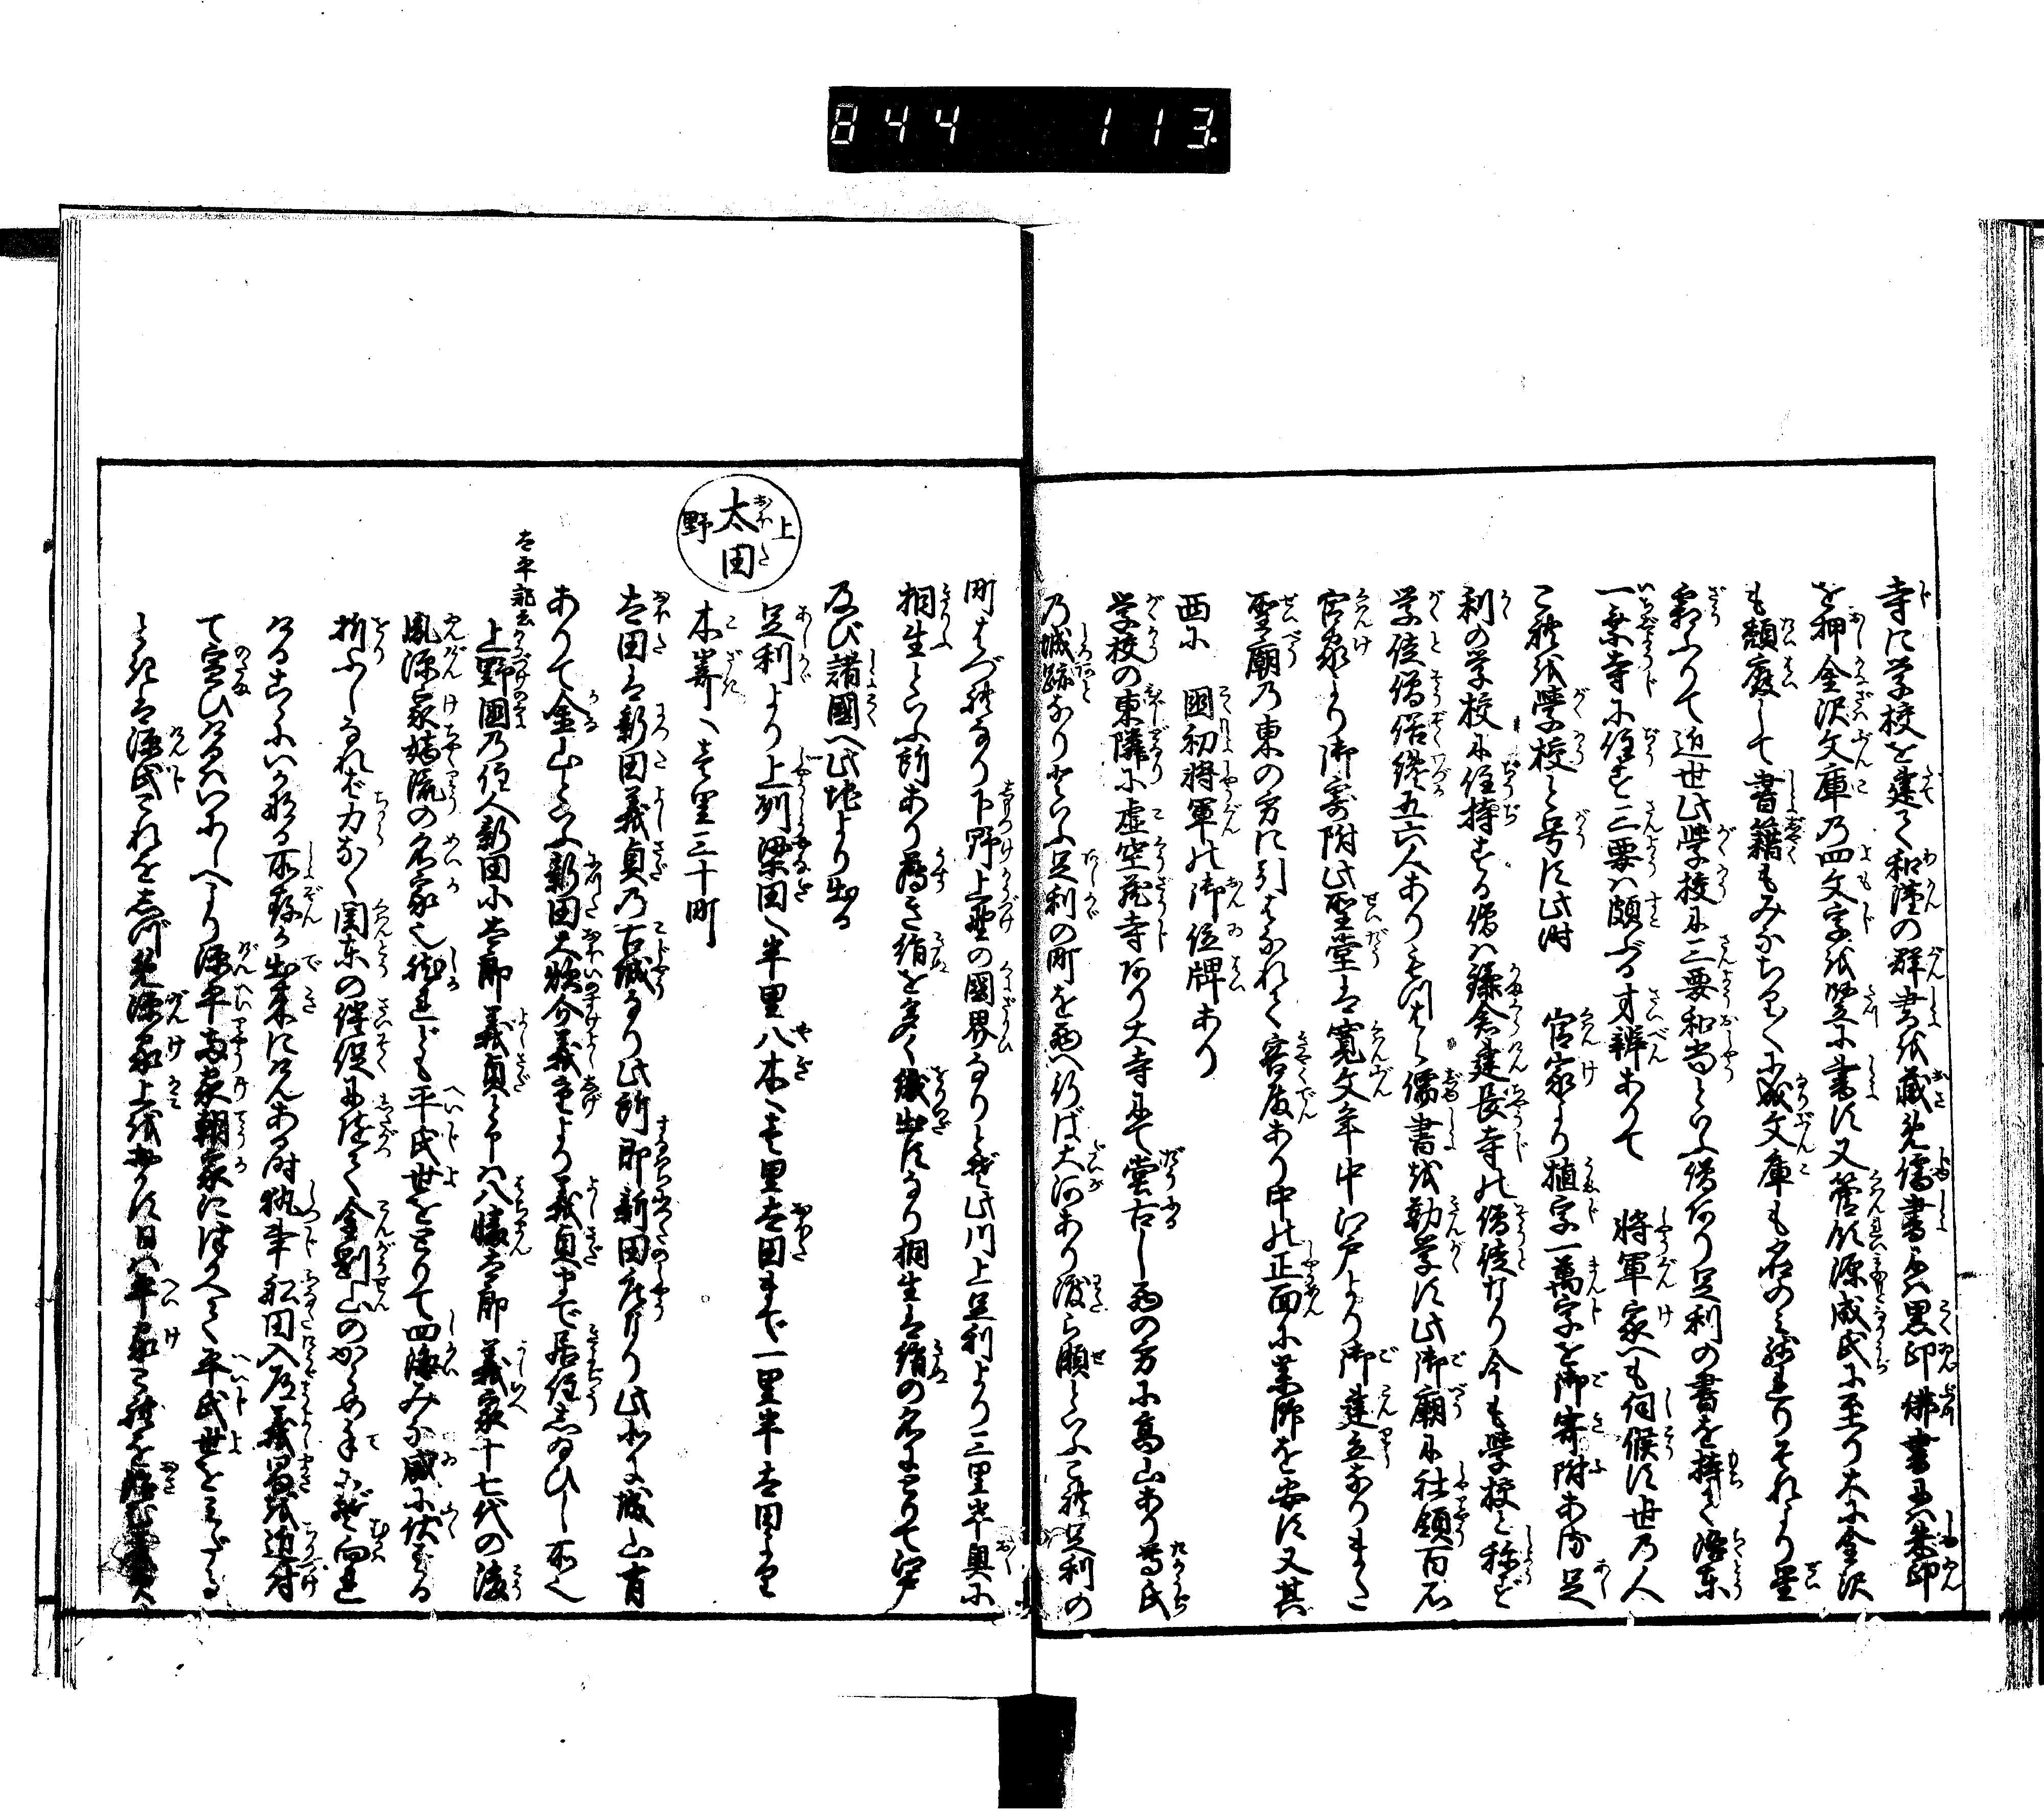 844 113
寺に学校を建て和漢の群書を蔵め儒書には黒印佛書には朱印
を押金沢文庫の四文字を竪に書す又管領源成氏に至り大に金沢
も頽廃して書籍もみなちりて文庫も名のみ残れりそれより星
霜ふりて近世此学校に三要和尚といふ僧有り足利の書を持て洛東
一乗寺に住す三要は頗る才辨ありて 将軍家へも伺候す世の人
これを学校と号す此時 官家より植字一萬字を御寄附あり足
利の学校に住持する僧は鎌倉建長寺の僧徒なり今も学校と称ず
学徒僧俗纔五六人ありもつはら儒書を勤学す此御廟に社領百石
官家より御寄附此聖堂は寛文年中江戸より御建立なりまた
聖廟の東の方に引はなれて客殿あり中の正面に薬師を安す又其
西に 國初将軍の御位牌あり
学校の東隣に虚空蔵寺有り大寺にて堂古し西の方に高山あり尊氏
の城跡なりといふ足利の町を西へ行ば大河あり渡ら瀬といふこれ足利の
町はづれなり下野上野の國界なりとぞ此川上足利より三里半奥に
桐生といふ所あり薄き絹を多く織出すなり桐生は絹の名によりて江戸
及び諸國へ此地より出る
足利より上州梁田へ半里八木へ壱里太田まで一里半太田より
木嵜へ壱里三十町
上野 太田
太田は新田義貞の古城なり此所即新田庄なり此北に城山有
ありて金山といふ新田大炊介義重より義貞まで居住し給ひし所也
太平記云
上野國の住人新田小太郎義貞と申は八幡太郎義家十七代の後
胤源家嫡流の名家也然れども平氏世をとりて四海みな威に伏する
折ふしなれば力なく関東の催促に随て金剛山のからめ手にぞ向れ
けるこゝにいかなる所存か出来にけんある時執事舩田入道義昌を近付
て宣ひけるはいにしへより源平両家朝家に仕へて平氏世をみだる
ときは源氏これをしづめ源家上を
日は平家これを